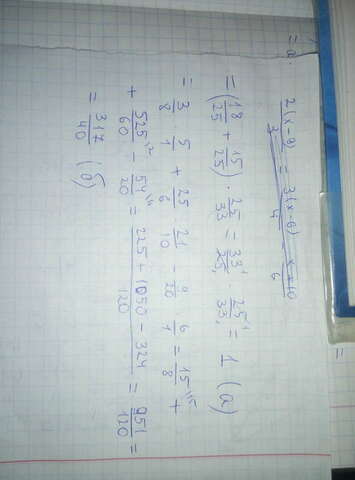 = a.
2(x-9)/3 = 3(x-6)/4 - x+10/6
= (18/25 + 15/25) · 25/33 = 33/25 · 25/33 = 1 (a)
= 3/8 · 5/1 + 25/6 · 21/10 - 9/20 · 6/1 = 15/8 +
+ 525/60 - 54/20 = 225 + 1050 - 324/120 = 951/120 =
= 317/40 (б)